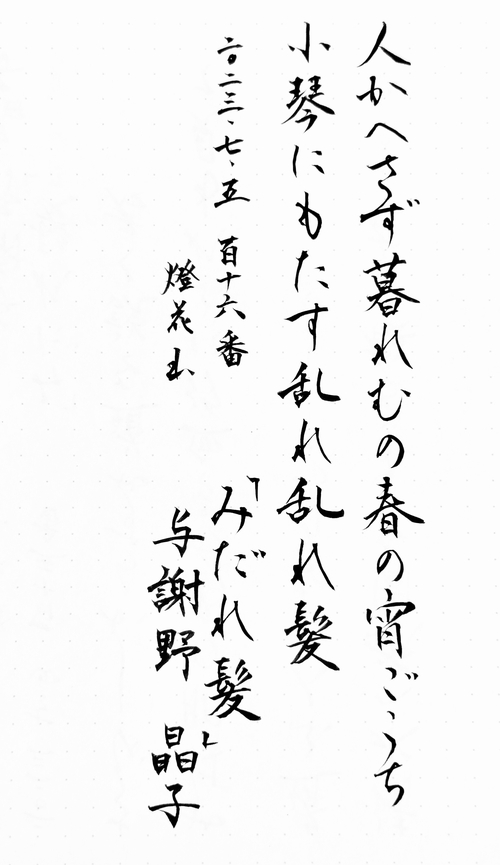 人かへさず暮れむの春の宵ごゝち
小琴にもたす乱れ乱れ髪
二〇二三、七、五 百十六番
燈花
「みだれ髪」
与謝野 晶子